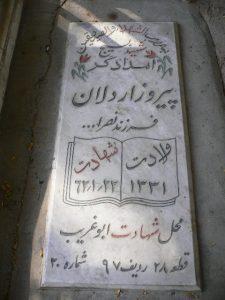 شهید
امدادگر
پیروز اردلان
فرزند نصرا...
ولادت شهادت
۱۳۳۱ ۶۲/۱۰/۲۲
محل شهادت ابوغریب
قطعه ۲۸ ردیف ۹۷ شماره ۲۰